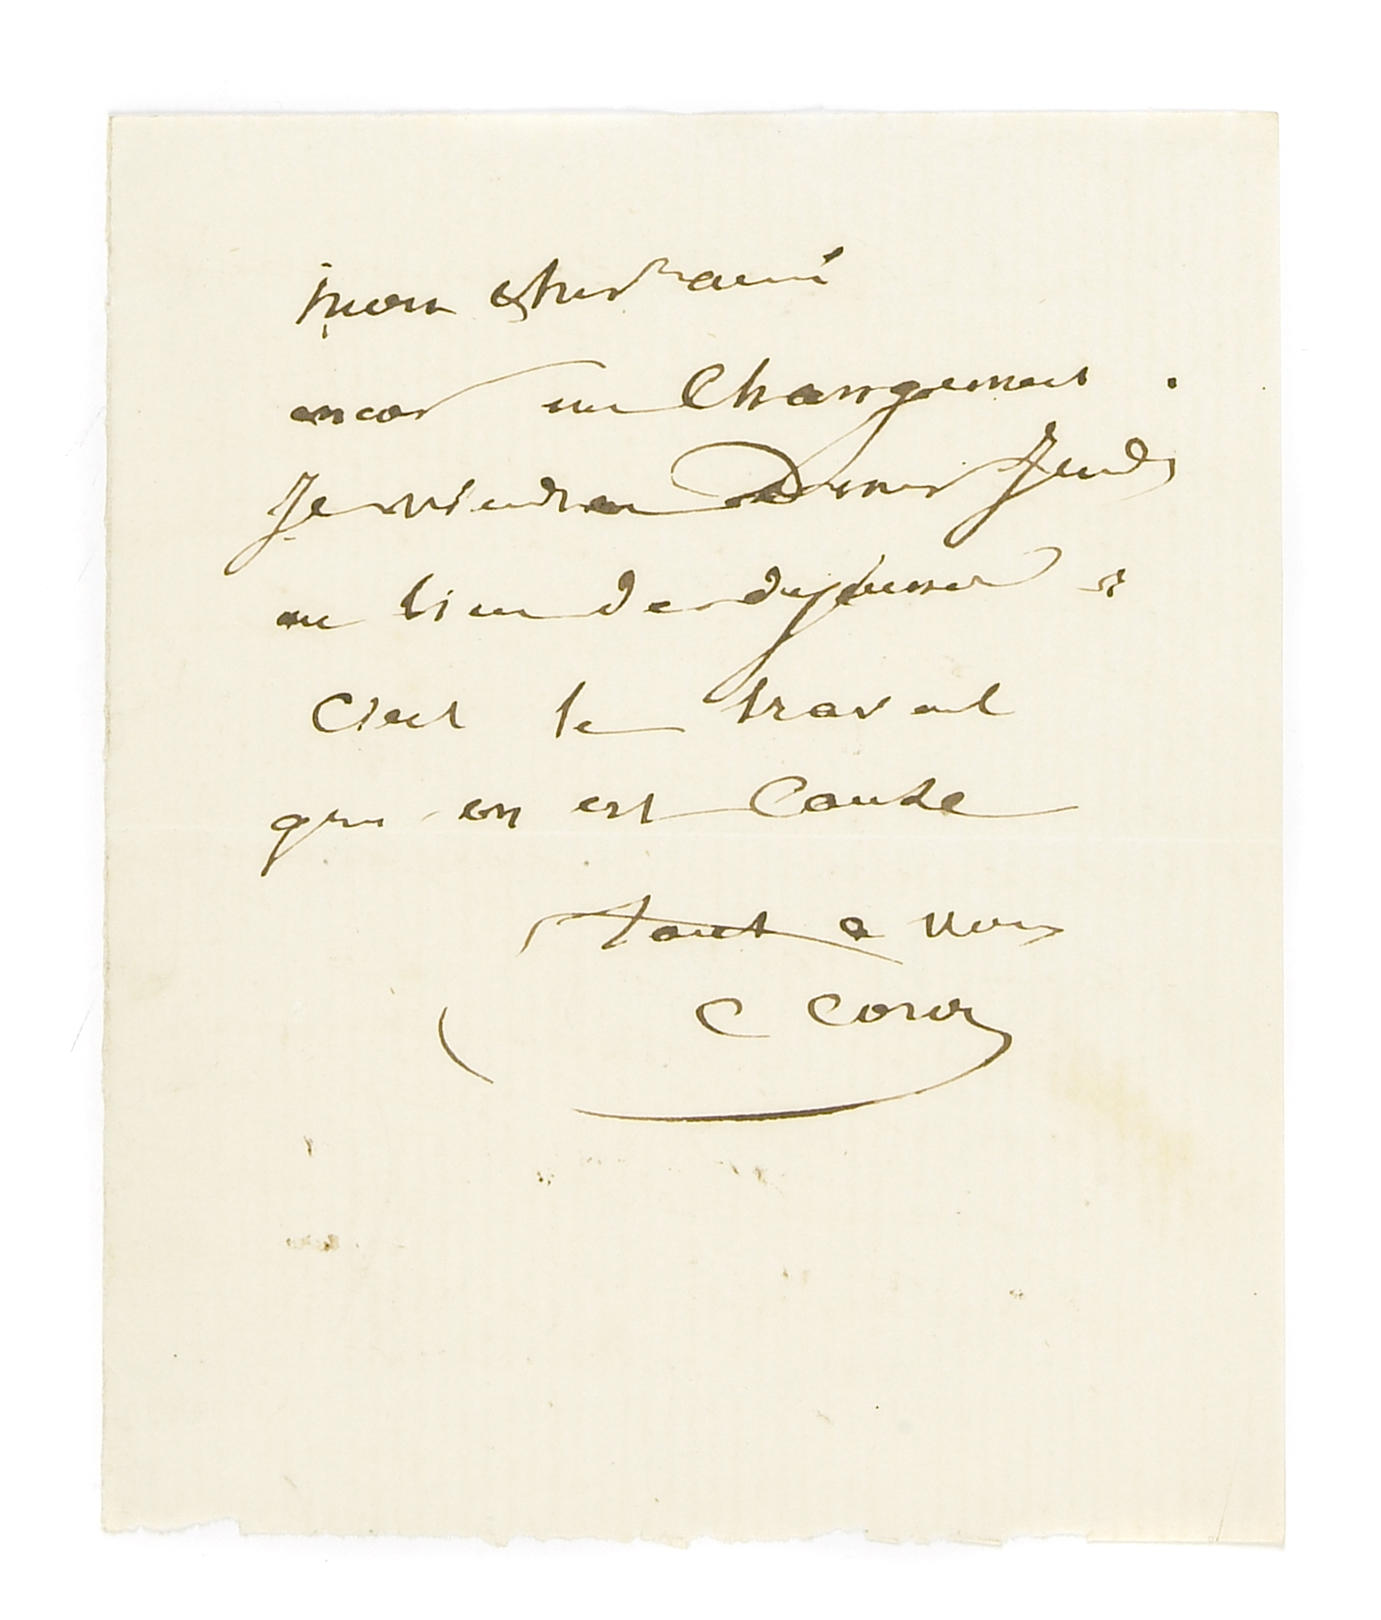 mon cher ami
encor un Changement .
Je viendrai Diner Jeudi
au lieu de dejeuner
C'est le travail
qui en est Cause
tout a vous
C Corot